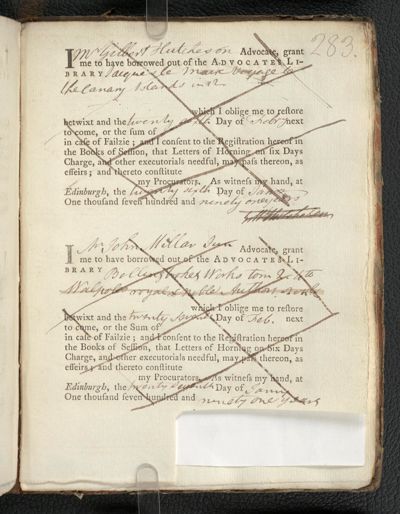 283.
I Mr Gilbert Hutcheson Advocate, grant
me to have borrowed out of the ADVOCATES LI-
BRARY voyage to
the Canary Islands
which I oblige me to restore
betwixt and the twenty Day of Feb next
to come, or the sum of
in case of Failzie; and I consent to the Registration hereof in
the Books of Session, that Letters of Horning on six Days
Charge, and other executorials needful, may pass thereon, as
effeirs; and thereto constitute
my Procurators. As witness my hand, at
Edinburgh, the twenty sixth Day of
One thousand seven hundred and ninety one years
G Hutcheson
I Mr John Millar Junr Advocate, grant
me to have borrowed out of the ADVOCATES LI-
BRARY Bolingbrokes Works tom 4to
Walpole royal & noble Authors
which I oblige me to restore
betwixt and the twenty Day of Feb. next
to come, or the Sum of
in case of Failzie; and I consent to the Registration hereof in
the Books of Session, that Letters of Horning on Six Days
Charge, and other executorials needful, may pass thereon, as
effeirs; and thereto constitute
my Procurators. As witness my hand, at
Edinburgh, the twenty seventh Day of Janry
One thousand seven hundred and ninety one years